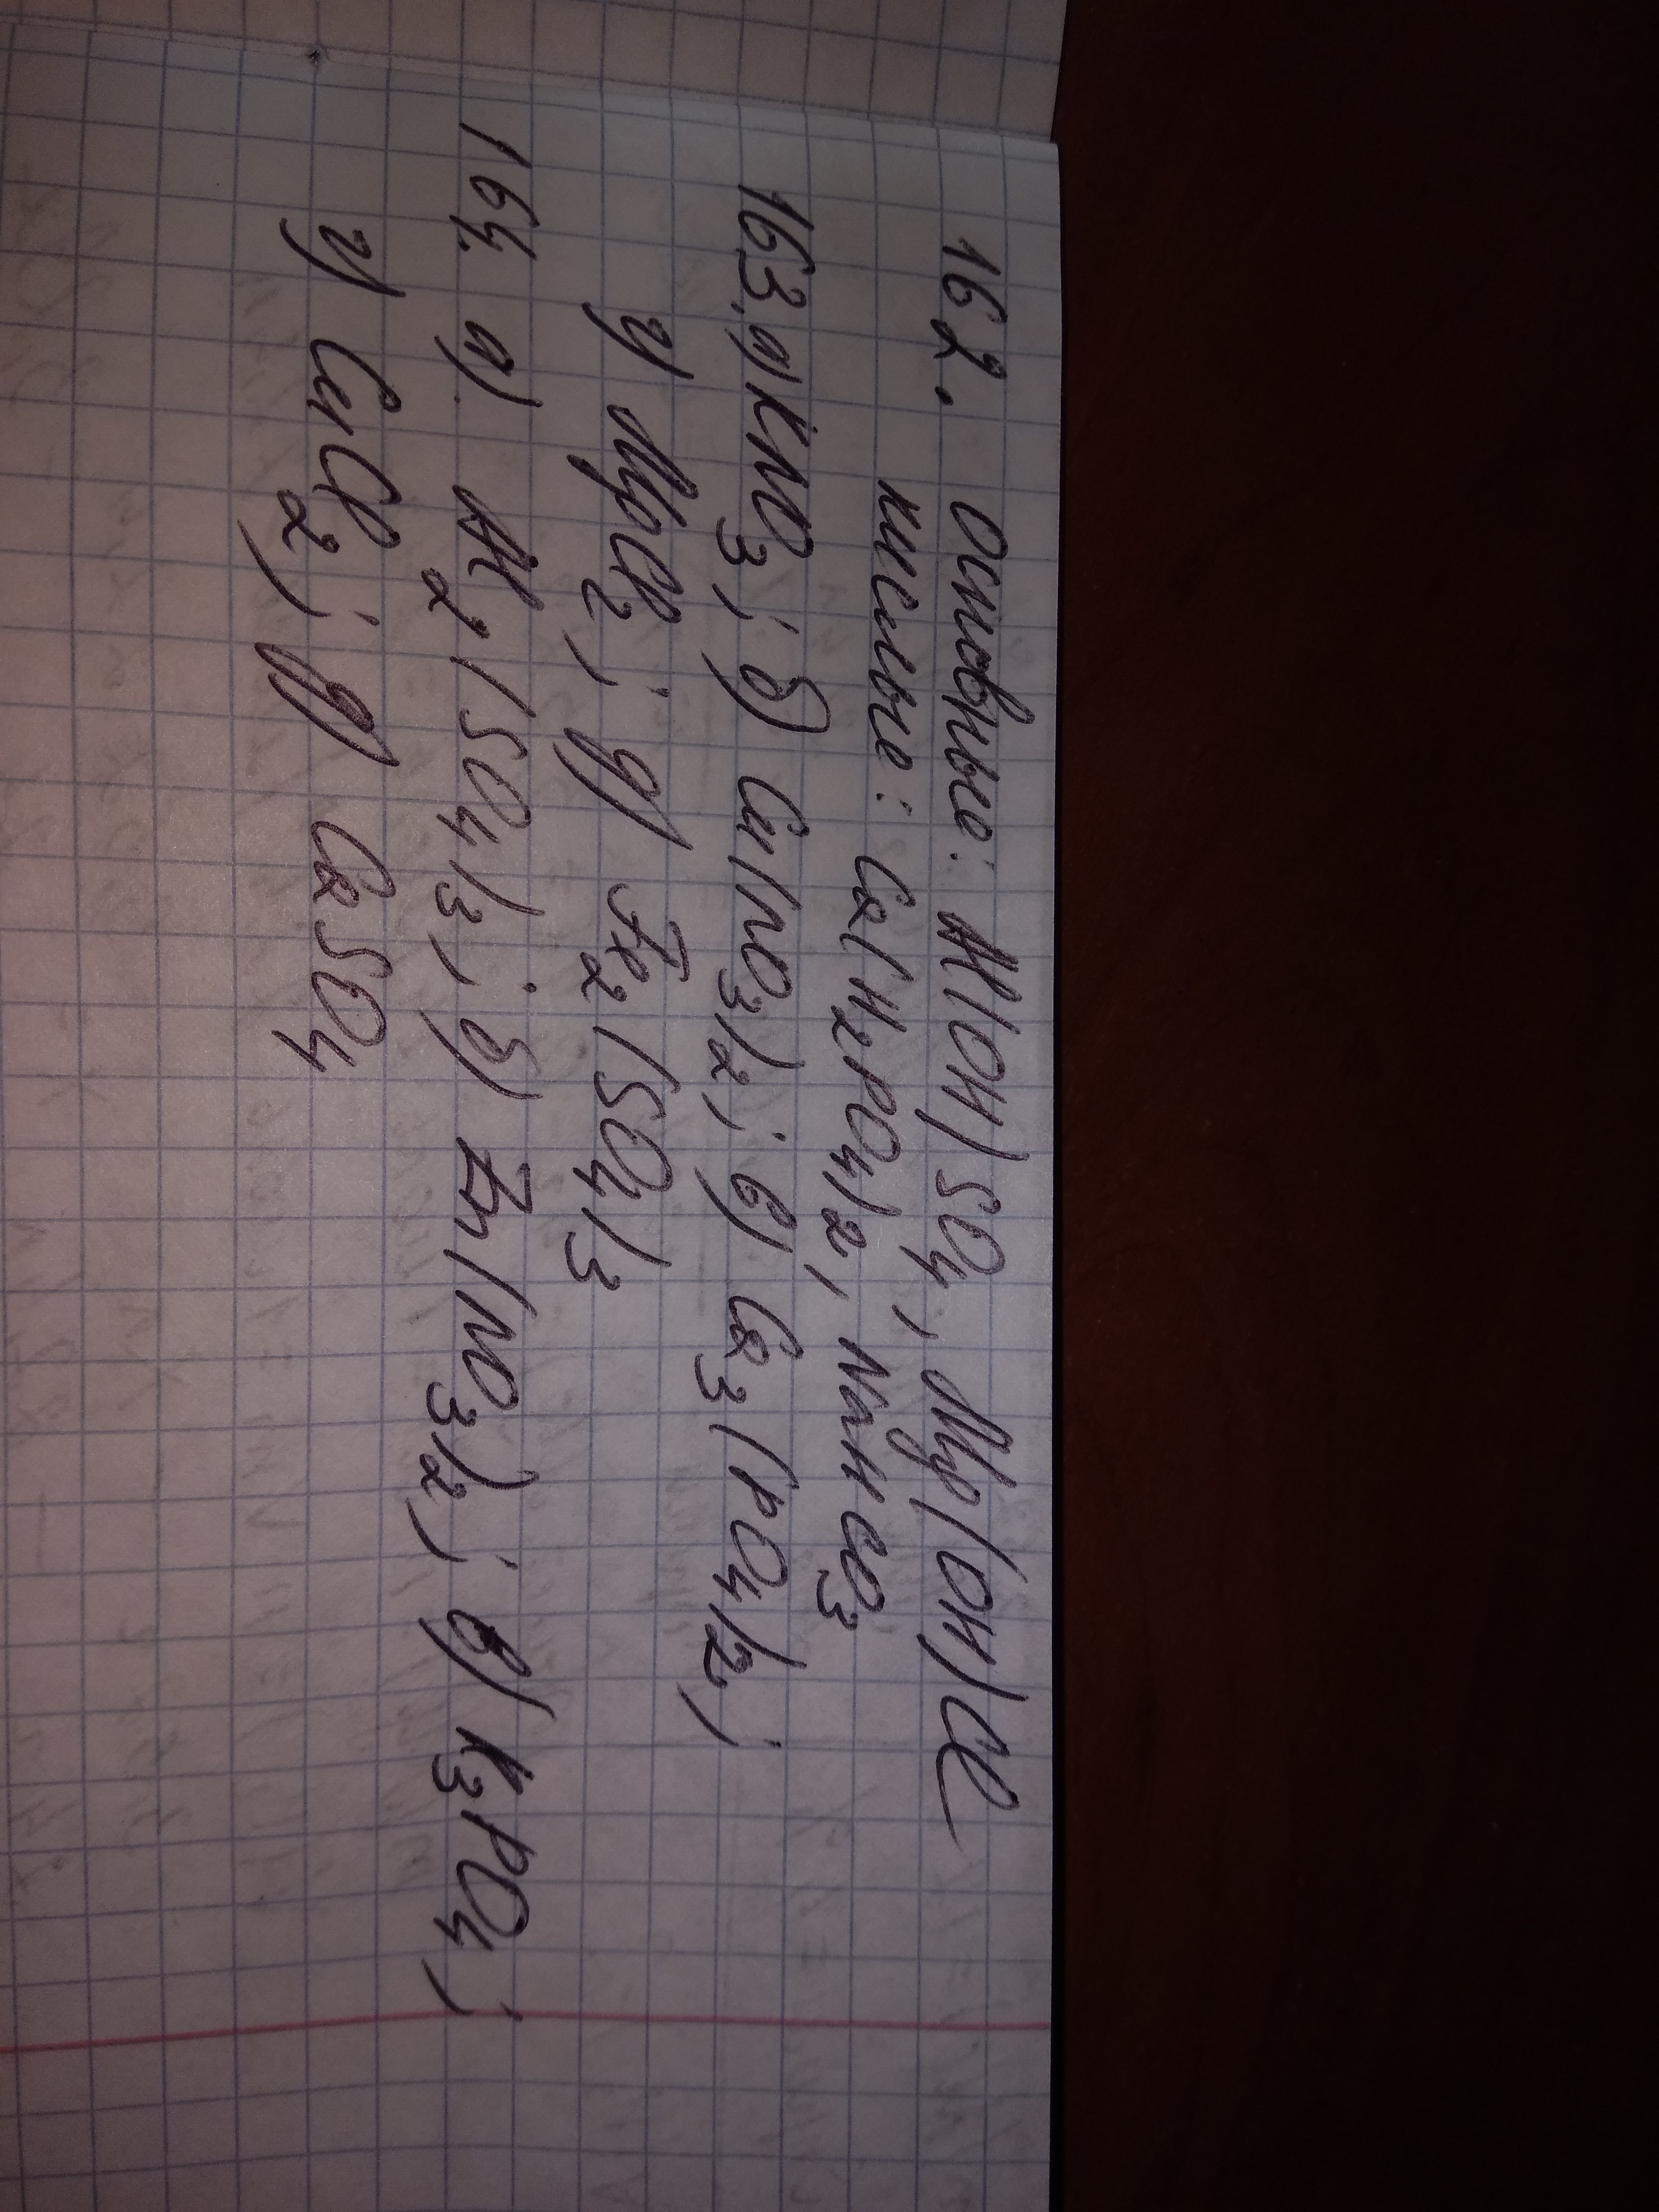 162. Основные: Al(OH)SO₄, Mg(OH)Cl
кислые: Ca(H₂PO₄)₂, NaHCO₃
163. а) KNO₃; б) Cu(NO₃)₂; в) Ca₃(PO₄)₂;
г) MgCl₂; д) Fe₂(SO₄)₃
164. а). Al₂(SO₄)₃; б) Zn(NO₃)₂; в) K₃PO₄;
г) CuCl₂; д) CaSO₄